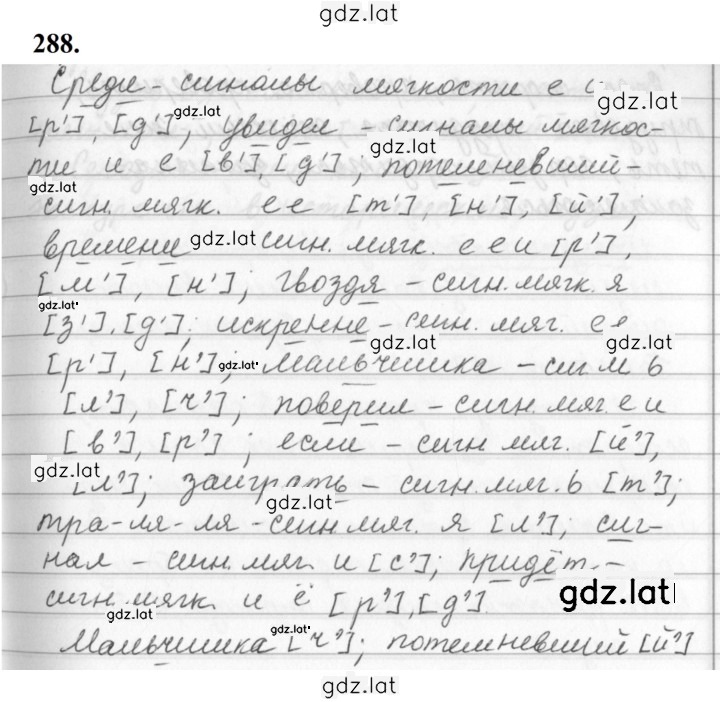 gdz.lat
288.
Среди - сигналы мягкости е
gdz.lat
[р'], [д'], увидел - сигналы мягкос-
gdz.lat
gdz.lat
ти и е [в'], [д'], потемневший -
gdz.lat
сигн. мягк. е е [т'], [н'], [й'];
времени сигн. мягк. е е и [р'],
gdz.lat
[м'], [н']; гвоздя - сигн. мягк. я
gdz.lat
[з'], [д']; искренне - сигн. мяг. е е
gdz.lat
gdz.lat
[р'], [н']; Мальчишка - сиг м ь
gdz.lat
[л'], [ч']; поверил - сигн. мяг. е и
[в'], [р']; если - сигн мяг. [й'],
gdz.lat
[л']; заиграть - сигн. мяг. ь [т'];
gdz.lat
тра-ля-ля - сигн мяг. я [л'], сиг-
нал - сигн. мяг. и [с']; придёт. -
gdz.lat
сигн. мягк. и ё [р'], [д']
gdz.lat
Мальчишка [ч']; потемневший [й']
gdz.lat
gdz.lat